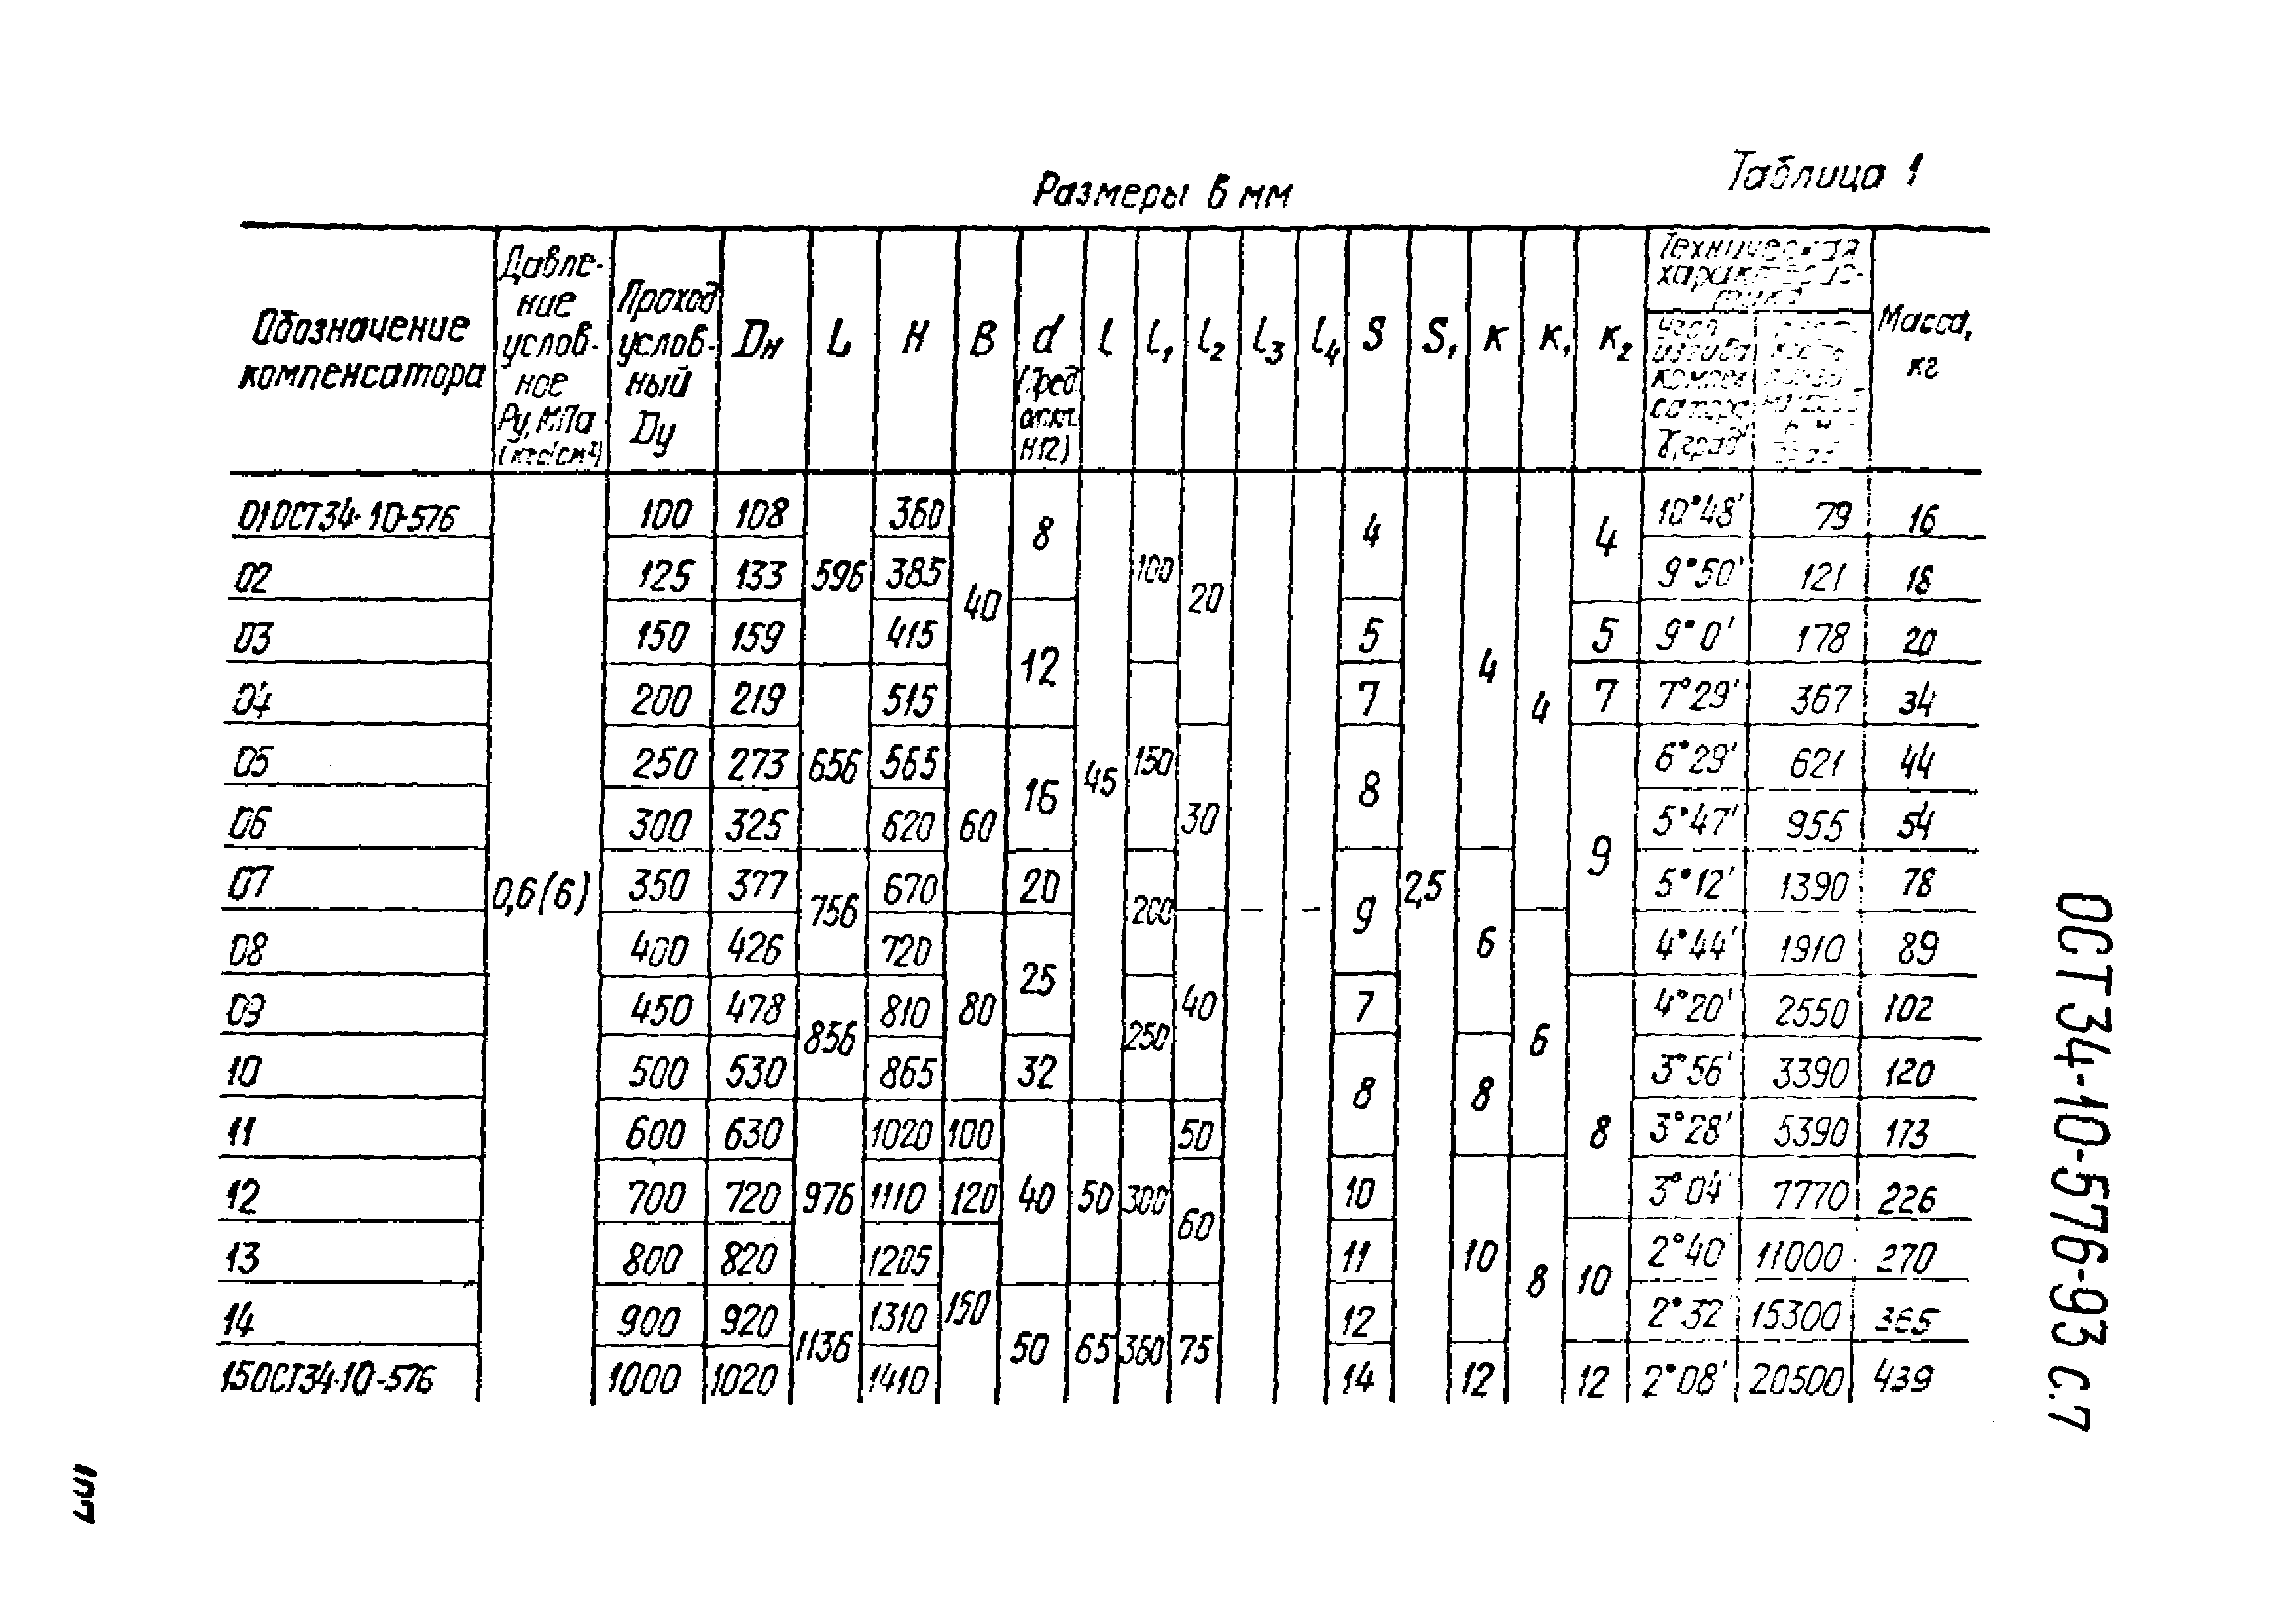 Таблица 1
Размеры в мм
Обозначение компенсатора | Давле-ние услов-ное Ру, МПа (кгс/см²) | Проход услов-ный Dу | Dн | L | H | B | d (Пред. откл. H12) | l | l₁ | l₂ | l₃ | l₄ | S | S₁ | к | к₁ | к₂ | Техническая характерис-тика | Масса, кг
Угол изгиба компен-сатора γ, град
01 ОСТ 34-10-576 | 0,6(6) | 100 | 108 | 596 | 360 | 40 | 8 | 45 | 100 | 20 | – | – | 4 | 2,5 | 4 | 4 | 4 | 10°48' | 79 | 16
02 | 125 | 133 | 385 | 9°50' | 121 | 18
03 | 150 | 159 | 415 | 12 | 5 | 5 | 9°0' | 178 | 20
04 | 200 | 219 | 656 | 515 | 150 | 7 | 7 | 7°29' | 367 | 34
05 | 250 | 273 | 565 | 60 | 16 | 30 | 8 | 9 | 6°29' | 621 | 44
06 | 300 | 325 | 620 | 5°47' | 955 | 54
07 | 350 | 377 | 756 | 670 | 20 | 200 | 9 | 6 | 5°12' | 1390 | 78
08 | 400 | 426 | 720 | 80 | 25 | 40 | 6 | 4°44' | 1910 | 89
09 | 450 | 478 | 856 | 810 | 250 | 7 | 8 | 4°20' | 2550 | 102
10 | 500 | 530 | 865 | 32 | 8 | 8 | 3°56' | 3390 | 120
11 | 600 | 630 | 976 | 1020 | 100 | 40 | 50 | 300 | 50 | 3°28' | 5390 | 173
12 | 700 | 720 | 1110 | 120 | 60 | 10 | 10 | 8 | 3°04' | 7770 | 226
13 | 800 | 820 | 1205 | 150 | 11 | 10 | 2°40' | 11000 | 270
14 | 900 | 920 | 1136 | 1310 | 50 | 65 | 360 | 75 | 12 | 2°32' | 15300 | 365
15 ОСТ 34-10-576 | 1000 | 1020 | 1410 | 14 | 12 | 12 | 2°08' | 20500 | 439
ОСТ 34-10-576-93 с.7